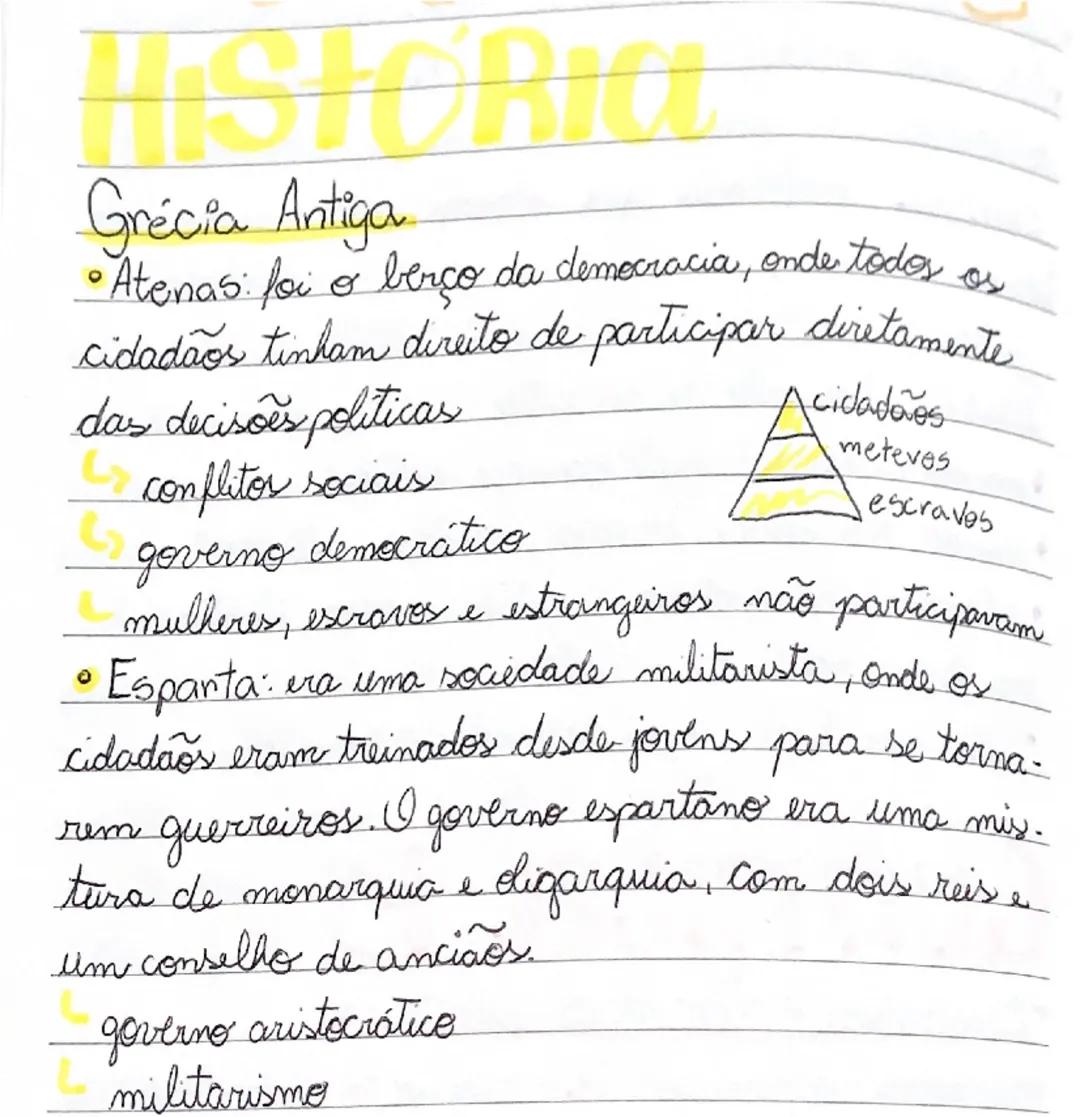 HiStÓRIa
Grécia Antiga
• Atenas: foi o berço da democracia, onde todos os
cidadãos tinham direito de participar diretamente
das decisões políticas
cidadães
meteves
escravos
↳ conflitos sociais
↳ governo democrático
mulheres, escravos e estrangeiros não participavam
• Espanta: era uma sociedade militarista, onde os
cidadãos eram treinados desde jovens para se torna-
rem guerreiros. O governo espartano era uma mis-
tura de monarquia e oligarquia, com dois reis e
um conselho de anciãos.
governo aristocrático
militarismo